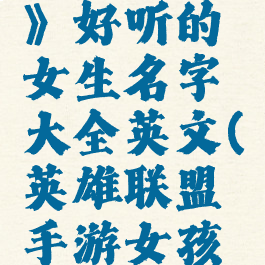 》好听的
女生名字
大全英文(
英雄联盟
手游女孩